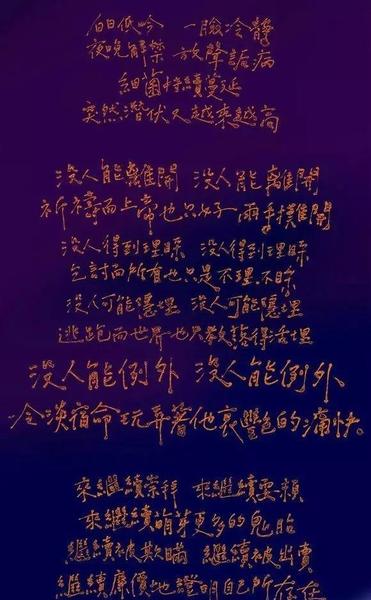 白日低吟 一臉冷靜
夜晚解禁 放聲詬病
細菌持續蔓延
突然潛伏又越來越高
沒人能離開 沒人能離開
祈禱而上帝也只好 兩手撲離開
沒人得到理睬 沒人得到理睬
乞討而所有也只是不理不睬
沒人可能隱埋 沒人可能隱埋
逃跑而世界也只教該得活埋
沒人能例外 沒人能例外
全淡宿命玩弄著他哀豔色的痛快
來繼續崇拜 來繼續耍賴
來繼續萌芽更多的鬼胎
繼續被欺瞞 繼續被出賣
繼續廉價地證明自己所存在